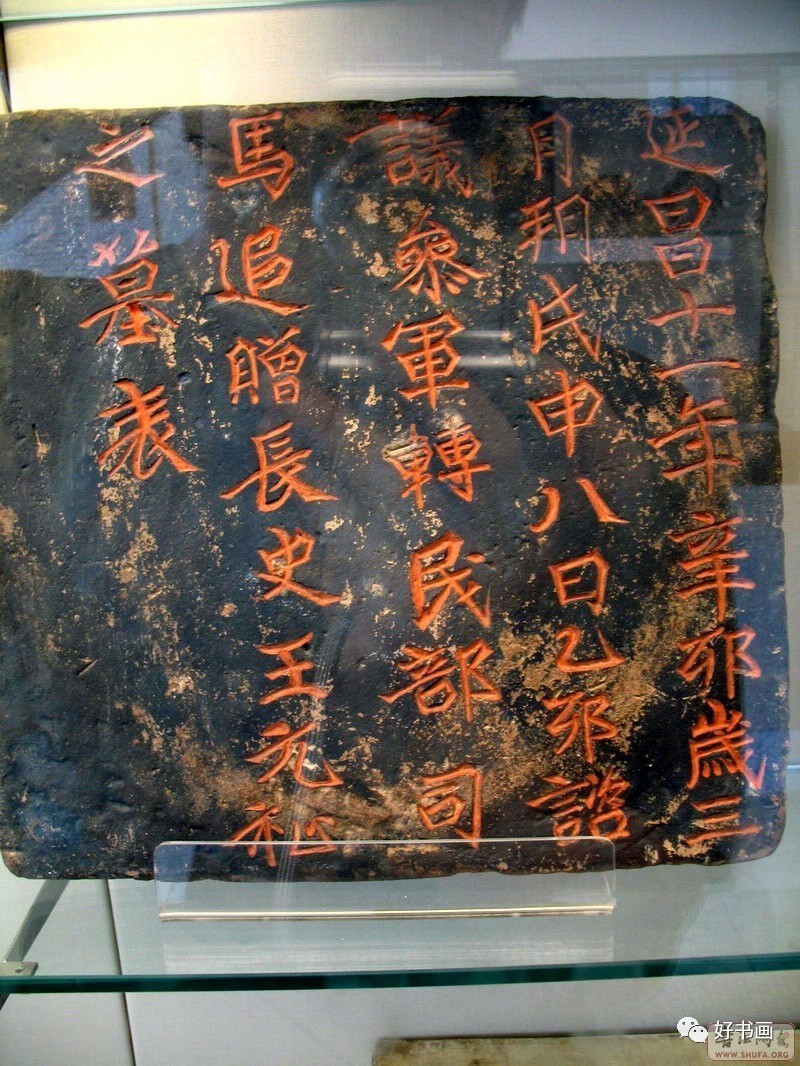 延昌十一年辛邜歲三
月朔戊申八日乙邜諮
議叅軍轉民部司
馬追贈長史王元祉
之墓表
好书画
WWW.SHUFA.ORG